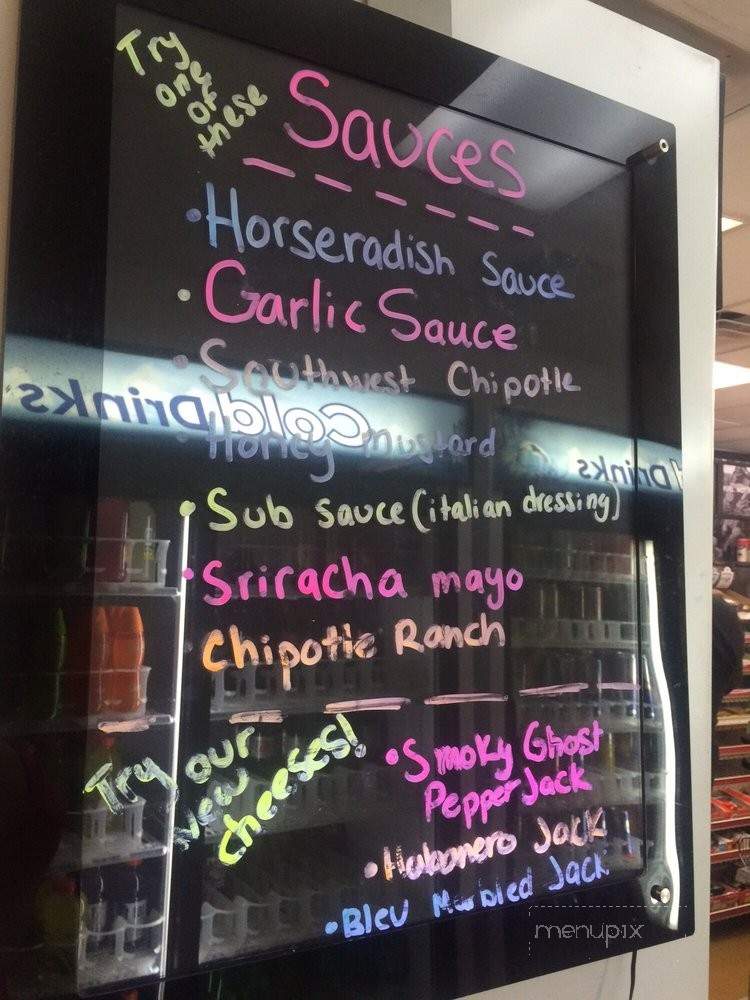 Try out
one of
these
Sauces
• Horseradish Sauce
• Garlic Sauce
• Southwest Chipotle
• Honey mustard
• Sub Sauce (italian dressing)
• Sriracha mayo
Chipotle Ranch
Try our
New
cheeses!
• Smoky Ghost
Pepper Jack
• Habanero Jack
• Bleu Marbled Jack
Cold Drinks
Drinks
menupix